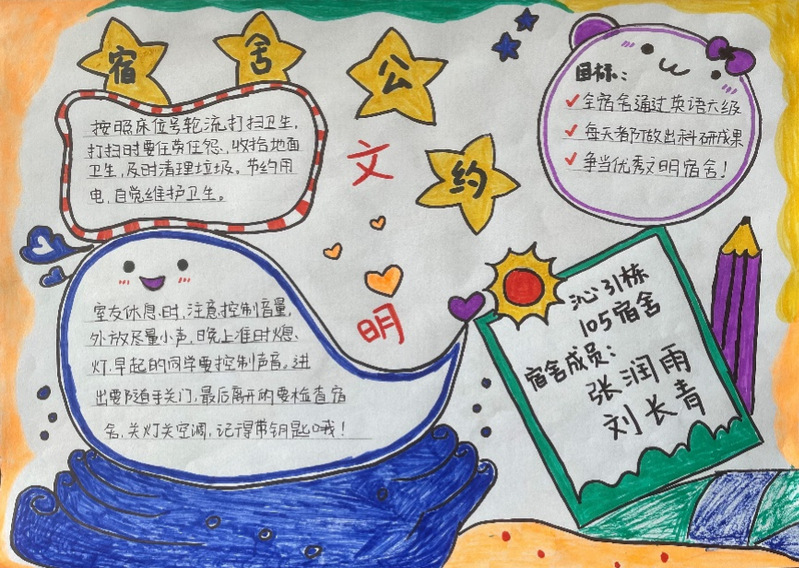 宿舍公约
文明
按照床位号轮流打扫卫生,
打扫时要任劳任怨、收拾地面
卫生,及时清理垃圾。节约用
电,自觉维护卫生。
目标:
✓全宿舍通过英语六级
✓每天都做出科研成果
✓争当优秀文明宿舍!
室友休息时,注意控制音量,
外放尽量小声,晚上准时熄
灯,早起的同学要控制声音。进
出要随手关门,最后离开的要检查宿
舍,关灯关空调,记得带钥匙哦!
沁引栋
105宿舍
宿舍成员:
张润雨
刘长青